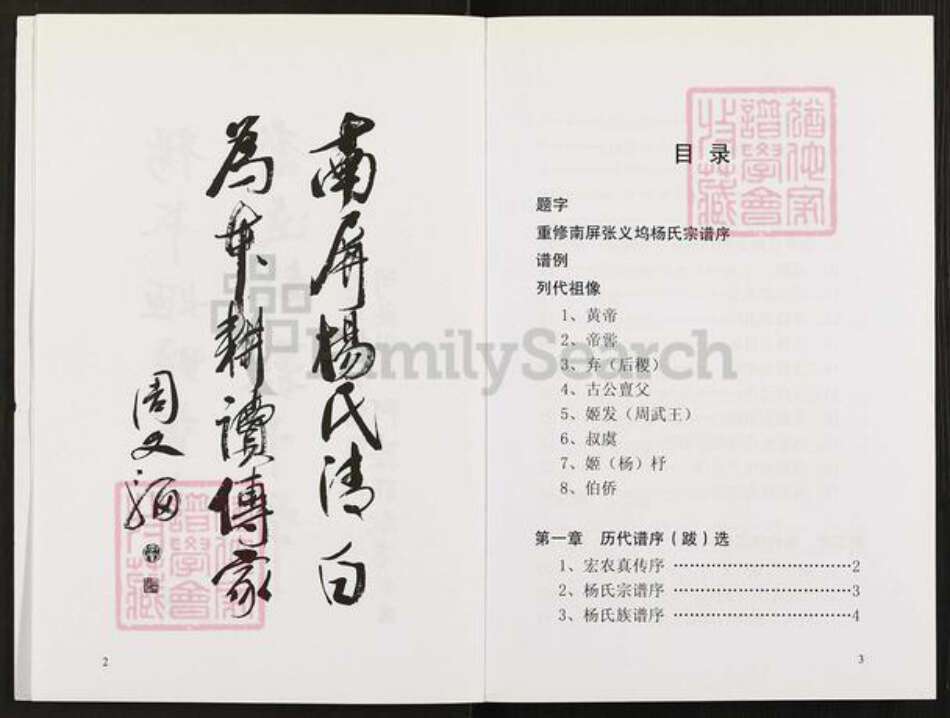 南屏楊氏清白
為本耕讀傳家
周文
2
目录
题字
重修南屏张义坞杨氏宗谱序
谱例
列代祖像
1、黄帝
2、帝喾
3、弃（后稷）
4、古公亶父
5、姬发（周武王）
6、叔虞
7、姬（杨）杼
8、伯侨
第一章 历代谱序（跋）选
1、宏农真传序 ……………………………2
2、杨氏宗谱序 ……………………………3
3、杨氏族谱序 ……………………………4
3
FamilySearch